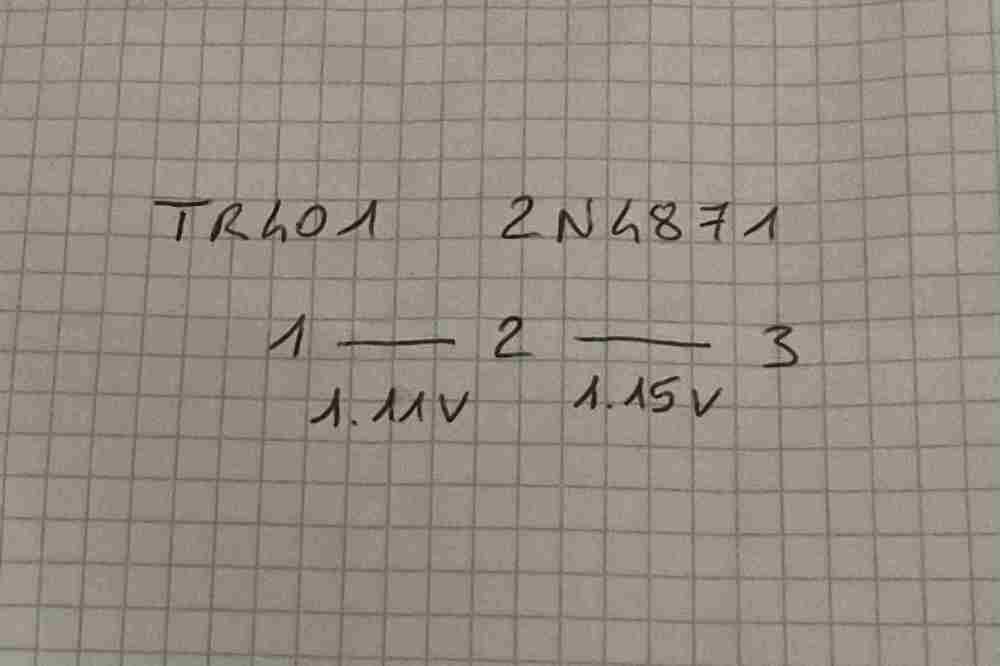 TR401 2N4871
1 — 2 — 3
1.11V 1.15V